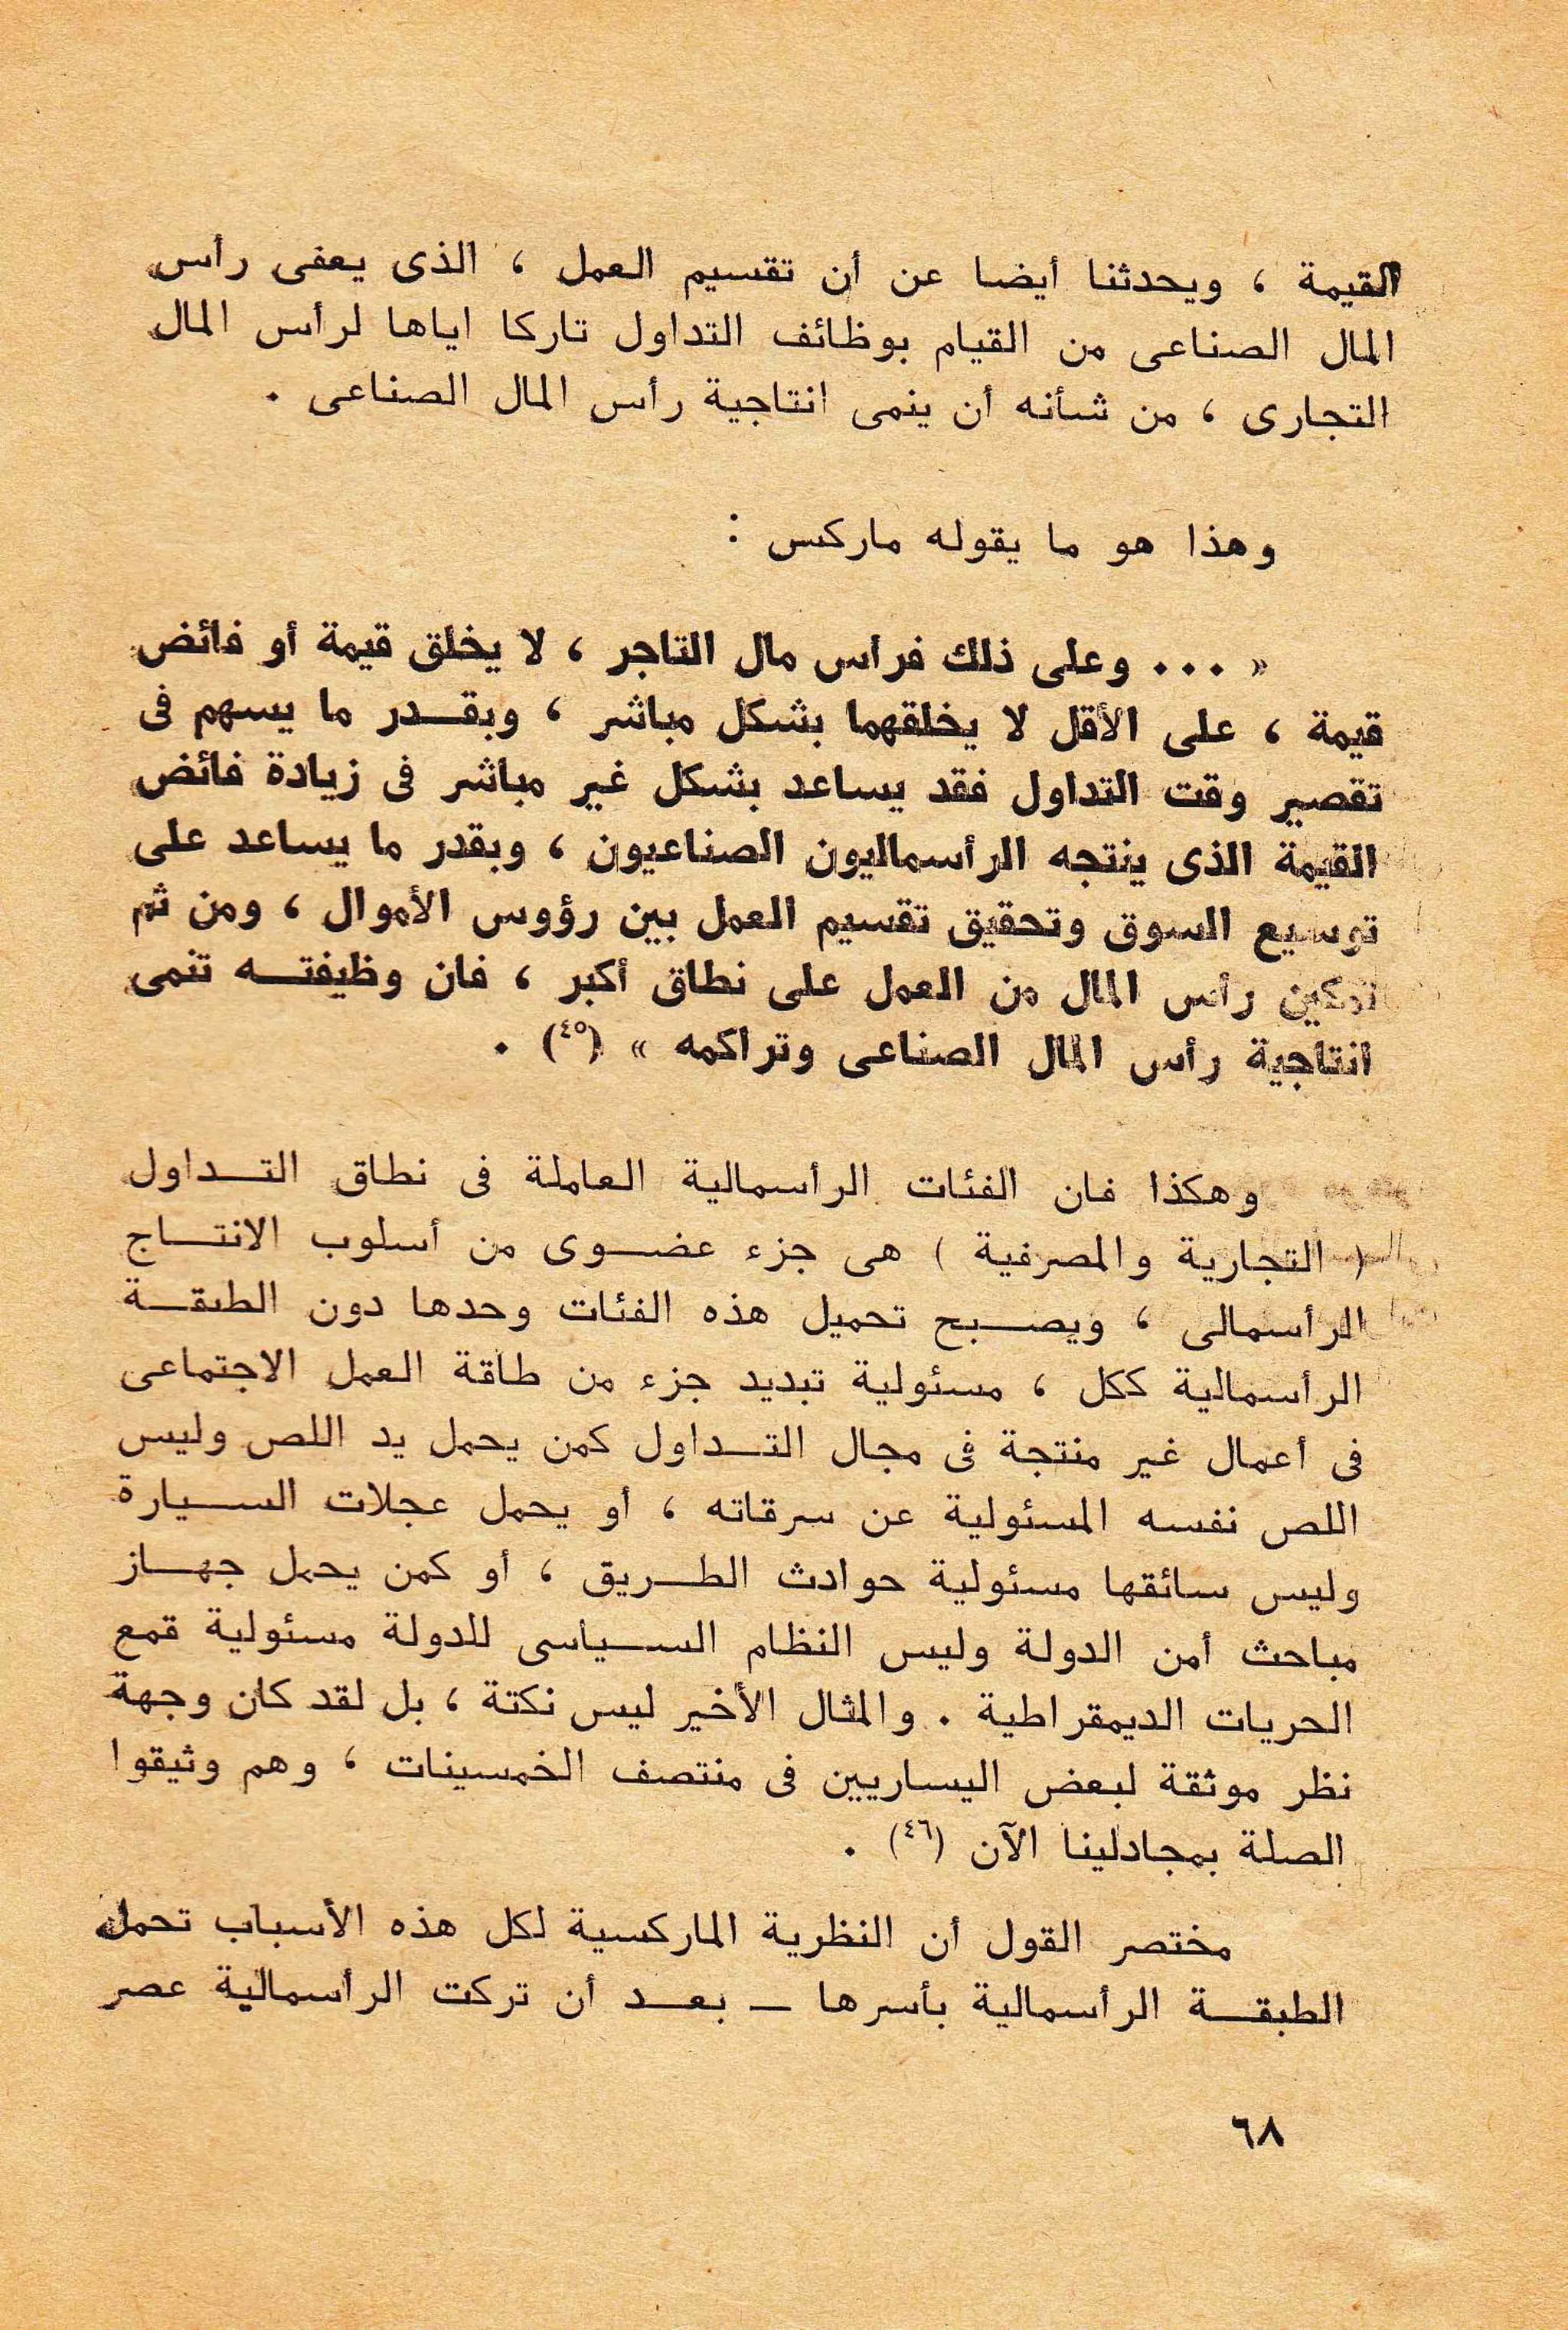 القيمة ، ويحدثنا أيضا عن أن تقسيم العمل ، الذى يعفى رأس
المال الصناعى من القيام بوظائف التداول تاركا اياها لرأس المال
التجارى ، من شأنه أن ينمى انتاجية رأس المال الصناعى .
وهذا هو ما يقوله ماركس :
« ... وعلى ذلك فرأس مال التاجر ، لا يخلق قيمة أو فائض
قيمة ، على الأقل لا يخلقهما بشكل مباشر ، وبقدر ما يسهم فى
تقصير وقت التداول فقد يساعد بشكل غير مباشر فى زيادة فائض
القيمة الذى ينتجه الرأسماليون الصناعيون ، وبقدر ما يساعد على
توسيع السوق وتحقيق تقسيم العمل بين رؤوس الأموال ، ومن ثم
تمكين رأس المال من العمل على نطاق أكبر ، فان وظيفته تنمى
انتاجية رأس المال الصناعى وتراكمه » (٤٥) .
وهكذا فان الفئات الرأسمالية العاملة فى نطاق التداول
( التجارية والمصرفية ) هى جزء عضوى من أسلوب الانتاج
الرأسمالى ، ويصبح تحميل هذه الفئات وحدها دون الطبقة
الرأسمالية ككل ، مسئولية تبديد جزء من طاقة العمل الاجتماعى
فى أعمال غير منتجة فى مجال التداول كمن يحمل يد اللص وليس
اللص نفسه المسئولية عن سرقاته ، أو يحمل عجلات السيارة
وليس سائقها مسئولية حوادث الطريق ، أو كمن يحمل جهاز
مباحث أمن الدولة وليس النظام السياسى للدولة مسئولية قمع
الحريات الديمقراطية . والمثال الأخير ليس نكتة ، بل لقد كان وجهة
نظر موثقة لبعض اليساريين فى منتصف الخمسينات ، وهم وثيقوا
الصلة بمجادلينا الآن (٤٦) .
مختصر القول أن النظرية الماركسية لكل هذه الأسباب تحمل
الطبقة الرأسمالية بأسرها — بعد أن تركت الرأسمالية عصر
٦٨